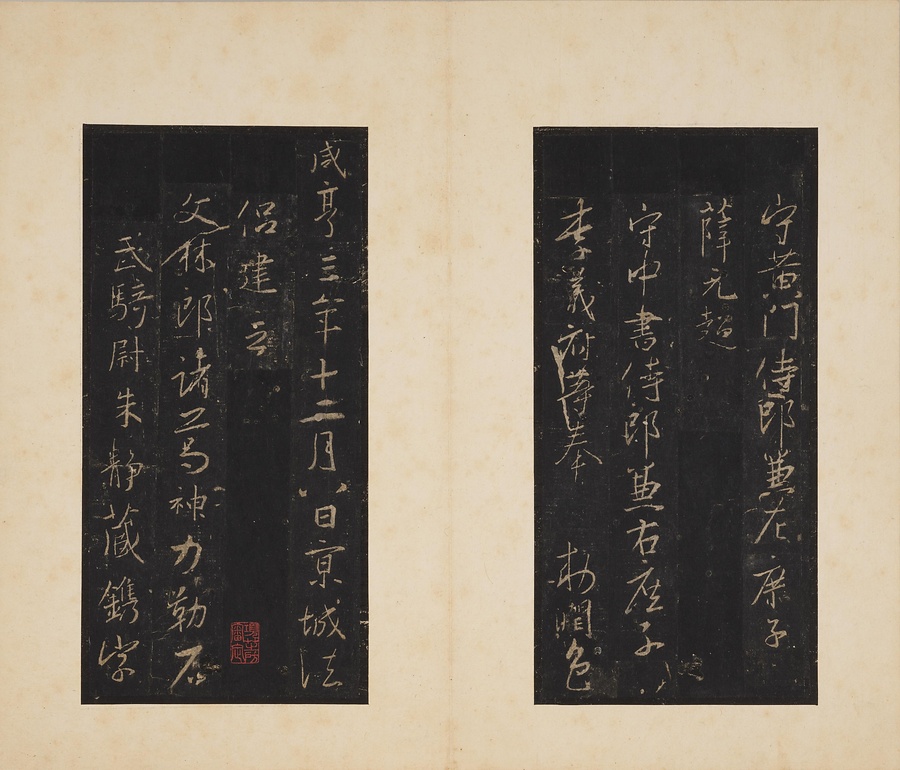 守黃門侍郎兼左庶子
薛元超
守中書侍郎兼右庶子
李義府等奉 敕潤色
咸亨三年十二月八日京城法
侶建立
文林郎諸葛神力勒石
武騎尉朱靜藏鐫字